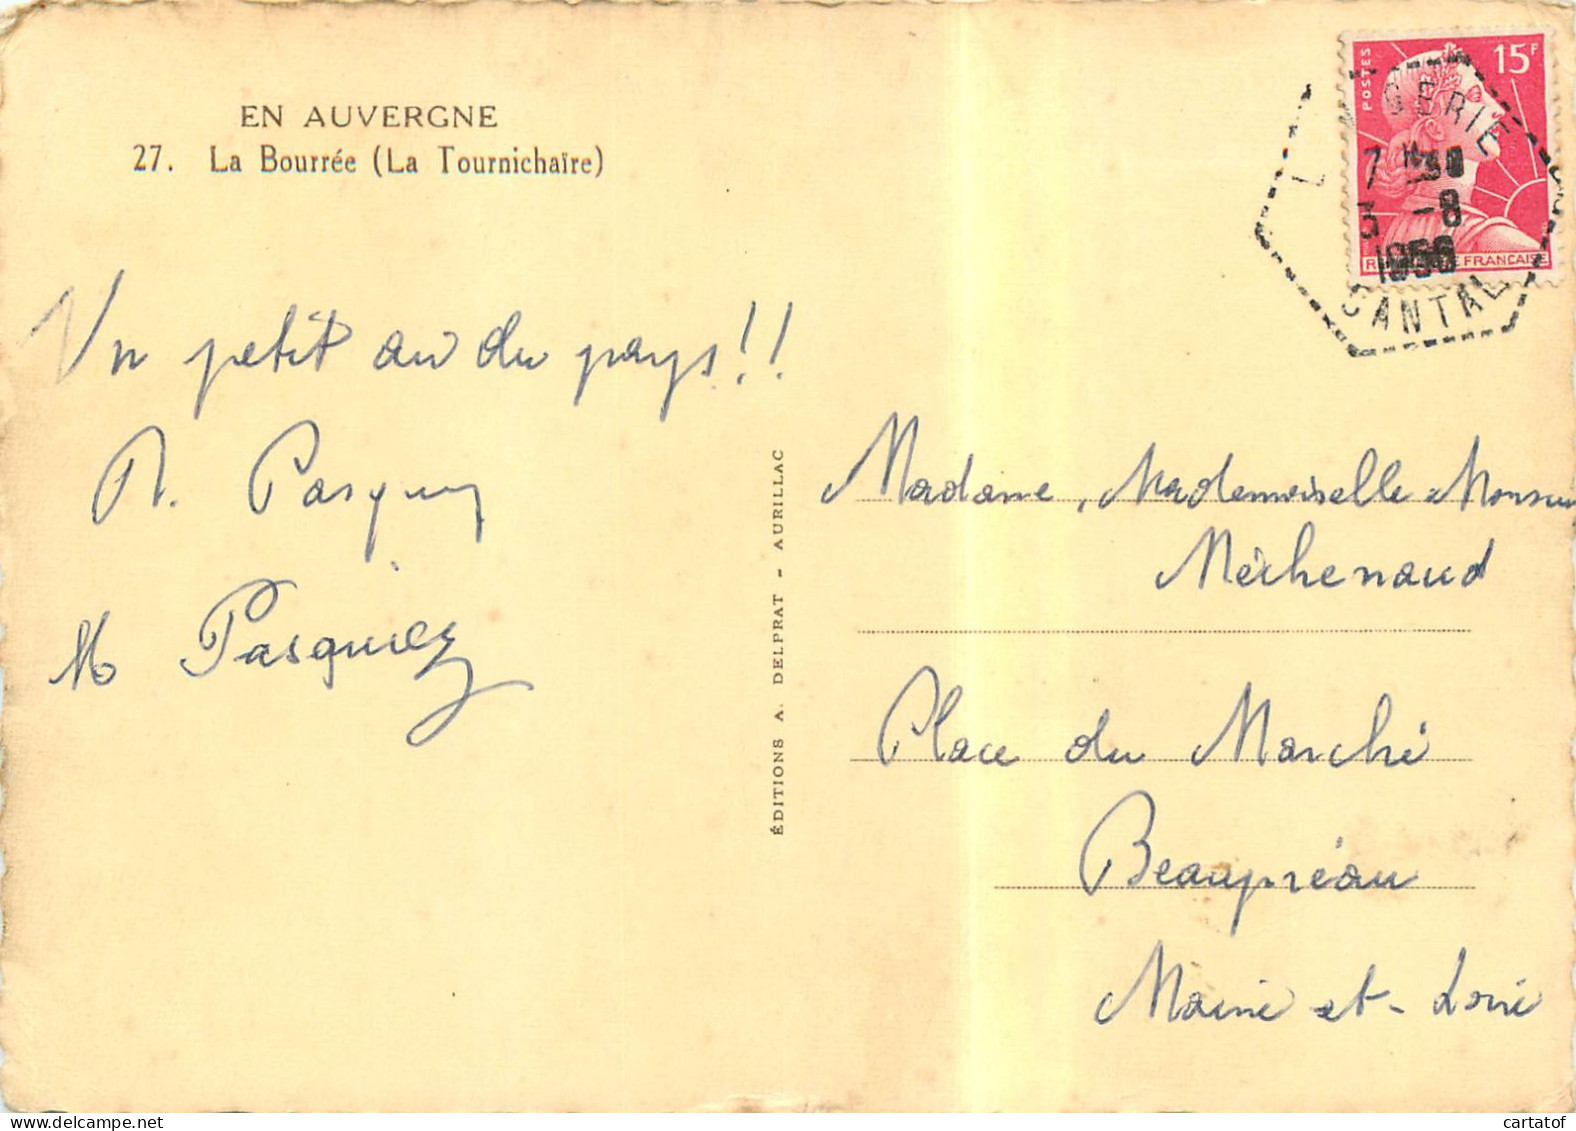 EN AUVERGNE
27. La Bourrée (La Tournichaïre)
Un petit air du pays!!
R. Pasquier
M Pasquiez
ÉDITIONS A. DELPRAT - AURILLAC
POSTES
15F
RÉPUBLIQUE FRANÇAISE
7 H30
3 -8
1956
CANTAL
Madame, Mademoiselle Monsieur
Méchenaud
Place du Marché
Beaupréau
Maine et-Loire
cartatof